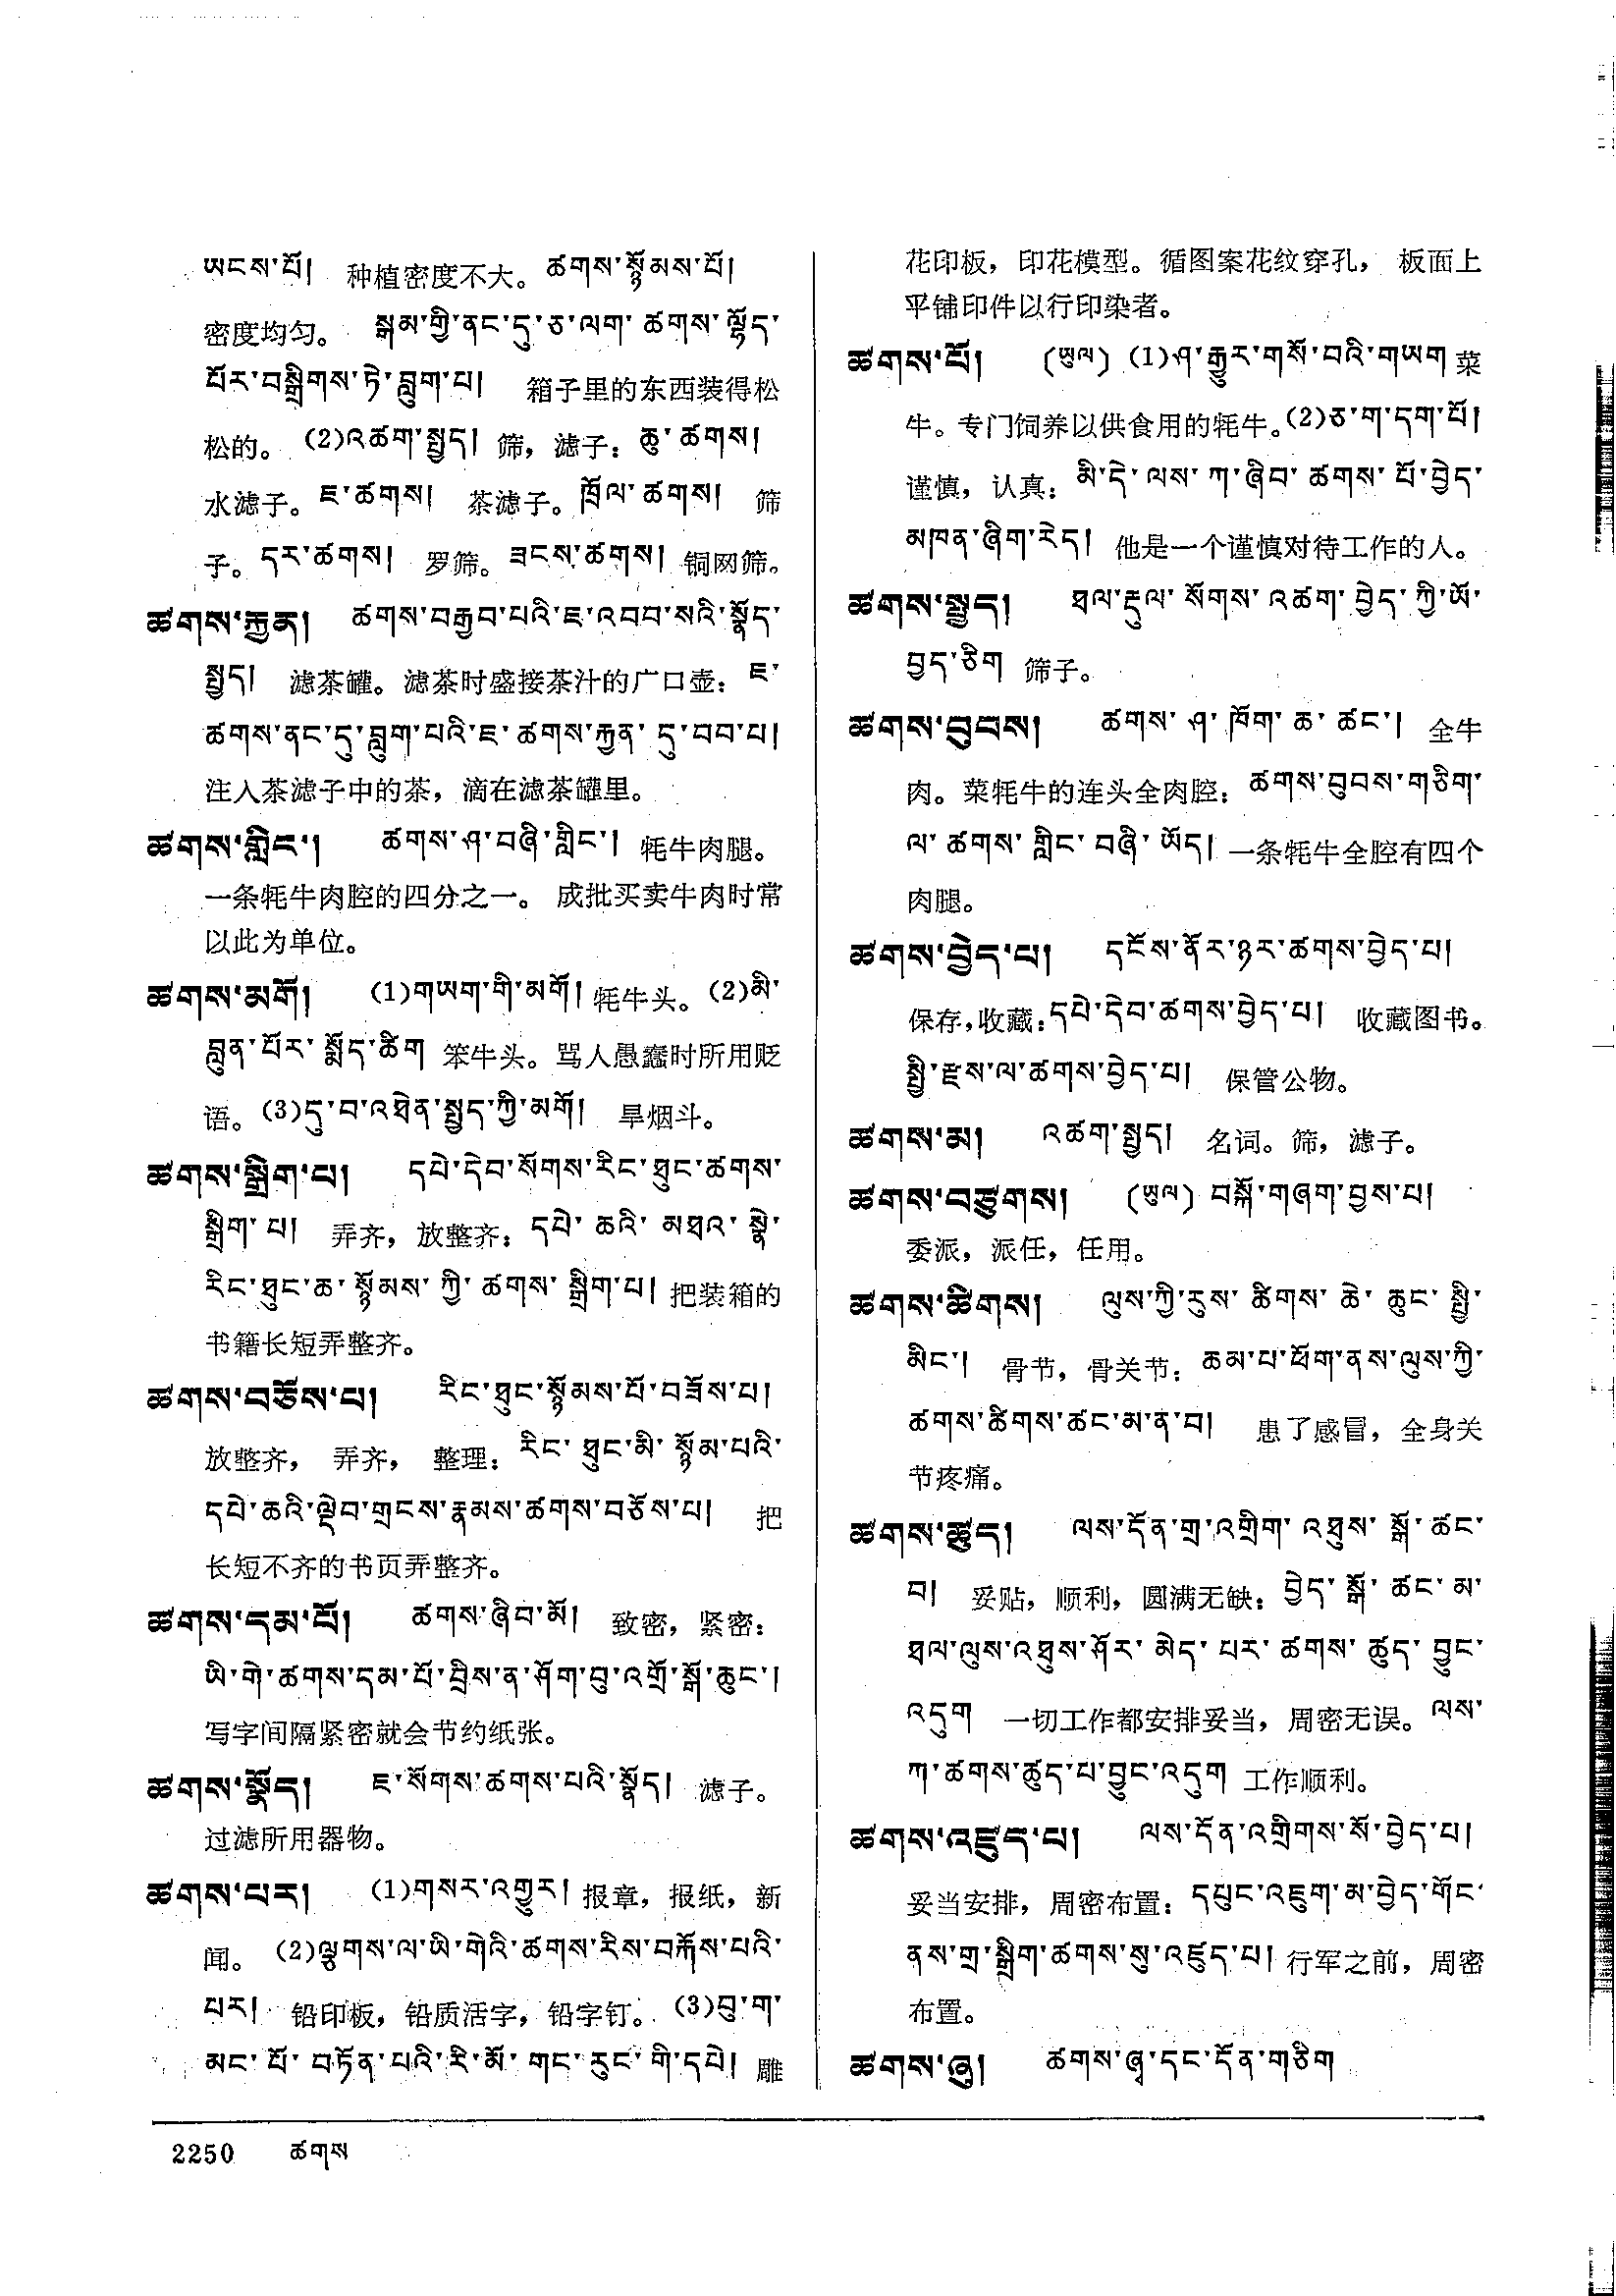 ཡངས་པོ། 种植密度不大。ཚགས་སྙོམས་པོ།
密度均匀。 སྒམ་གྱི་ནང་དུ་ཅ་ལག་ཚགས་ལྷོད་
པོར་བསྒྲིགས་ཏེ་བླུག་པ། 箱子里的东西装得松
松的。(2)འཚག་སྤྱད། 筛，滤子：ཆུ་ཚགས།
水滤子。ཇ་ཚགས། 茶滤子。ཁྲོལ་ཚགས། 筛
子。དར་ཚགས། 罗筛。ཟངས་ཚགས། 铜网筛。
ཚགས་རྐྱན། ཚགས་བརྒྱབ་པའི་ཇ་འབབ་སའི་སྣོད་
སྤྱད། 滤茶罐。滤茶时盛接茶汁的广口壶：ཇ་
ཚགས་ནང་དུ་བླུག་པའི་ཇ་ཚགས་རྐྱན་དུ་བབ་པ།
注入茶滤子中的茶，滴在滤茶罐里。
ཚགས་གླིང་། ཚགས་ཤ་བཞི་གླིང་། 牦牛肉腿。
一条牦牛肉腔的四分之一。 成批买卖牛肉时常
以此为单位。
ཚགས་མགོ། (1)གཡག་གི་མགོ། 牦牛头。(2)མི་
བླུན་པོར་སྨོད་ཚིག 笨牛头。骂人愚蠢时所用贬
语。(3)དུ་བ་འཐེན་སྤྱད་ཀྱི་མགོ། 旱烟斗。
ཚགས་སྒྲིག་པ། དཔེ་དེབ་སོགས་རིང་ཐུང་ཚགས་
སྒྲིག་པ། 弄齐，放整齐：དཔེ་ཆའི་མཐའ་སྣེ་
རིང་ཐུང་ཆ་སྙོམས་ཀྱི་ཚགས་སྒྲིག་པ། 把装箱的
书籍长短弄整齐。
ཚགས་བཅོས་པ། རིང་ཐུང་སྙོམས་པོ་བཟོས་པ།
放整齐， 弄齐， 整理：རིང་ཐུང་མི་སྙོམ་པའི་
དཔེ་ཆའི་ལྡེབ་གྲངས་རྣམས་ཚགས་བཅོས་པ། 把
长短不齐的书页弄整齐。
ཚགས་དམ་པོ། ཚགས་ཞིབ་མོ། 致密，紧密：
ཡི་གེ་ཚགས་དམ་པོ་བྲིས་ན་ཤོག་བུ་འགྲོ་སྒོ་ཆུང་།
写字间隔紧密就会节约纸张。
ཚགས་སྣོད། ཇ་སོགས་ཚགས་པའི་སྣོད། 滤子。
过滤所用器物。
ཚགས་པར། (1)གསར་འགྱུར། 报章，报纸，新
闻。 (2)ལྕགས་ལ་ཡི་གེའི་ཚགས་རིས་བརྐོས་པའི་
པར། 铅印板，铅质活字，铅字钉。(3)བུ་ག་
མང་པོ་བཏོན་པའི་རི་མོ་གང་རུང་གི་དཔེ། 雕
花印板，印花模型。循图案花纹穿孔， 板面上
平铺印件以行印染者。
ཚགས་པོ། (ཡུལ) (1)ཤ་རྒྱུར་གསོ་བའི་གཡག 菜
牛。专门饲养以供食用的牦牛。(2)ཅ་ག་དག་པོ།
谨慎，认真：མི་དེ་ལས་ཀ་ཞིབ་ཚགས་པོ་བྱེད་
མཁན་ཞིག་རེད། 他是一个谨慎对待工作的人。
ཚགས་སྤྱད། ཐལ་རྡུལ་སོགས་འཚག་བྱེད་ཀྱི་ཡོ་
བྱད་ཅིག 筛子。
ཚགས་བུབས། ཚགས་ཤ་ཁོག་ཆ་ཚང་། 全牛
肉。菜牦牛的连头全肉腔：ཚགས་བུབས་གཅིག་
ལ་ཚགས་གླིང་བཞི་ཡོད། 一条牦牛全腔有四个
肉腿。
ཚགས་བྱེད་པ། དངོས་ནོར་ཉར་ཚགས་བྱེད་པ།
保存，收藏：དཔེ་དེབ་ཚགས་བྱེད་པ། 收藏图书。
སྤྱི་རྫས་ལ་ཚགས་བྱེད་པ། 保管公物。
ཚགས་མ། འཚག་སྤྱད། 名词。筛，滤子。
ཚགས་བཙུགས། (ཡུལ) བསྐོ་གཞག་བྱས་པ།
委派，派任，任用。
ཚགས་ཚིགས། ལུས་ཀྱི་རུས་ཚིགས་ཆེ་ཆུང་སྤྱི་
མིང་། 骨节，骨关节：ཆམ་པ་ཕོག་ནས་ལུས་ཀྱི་
ཚགས་ཚིགས་ཚང་མ་ན་བ། 患了感冒，全身关
节疼痛。
ཚགས་ཚུད། ལས་དོན་གྲ་འགྲིག་འཐུས་སྒོ་ཚང་
བ། 妥贴，顺利，圆满无缺：བྱེད་སྒོ་ཚང་མ་
ཐལ་ལུས་འཐུས་ཤོར་མེད་པར་ཚགས་ཚུད་བྱུང་
འདུག 一切工作都安排妥当，周密无误。ལས་
ཀ་ཚགས་ཚུད་པ་བྱུང་འདུག 工作顺利。
ཚགས་འཛུད་པ། ལས་དོན་འགྲིགས་སོ་བྱེད་པ།
妥当安排，周密布置：དཔུང་འཇུག་མ་བྱེད་གོང་
ནས་གྲ་སྒྲིག་ཚགས་སུ་འཛུད་པ། 行军之前，周密
布置。
ཚགས་ཞུ། ཚགས་ཞྭ་དང་དོན་གཅིག
2250 ཚགས